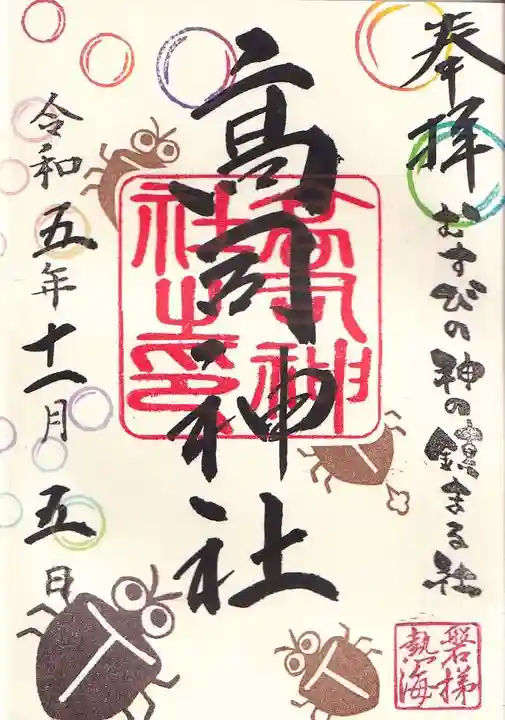 奉拝
むすびの神の鎮まる社
高司神社
高司神社之印
令和五年十一月五日
磐梯
熱海